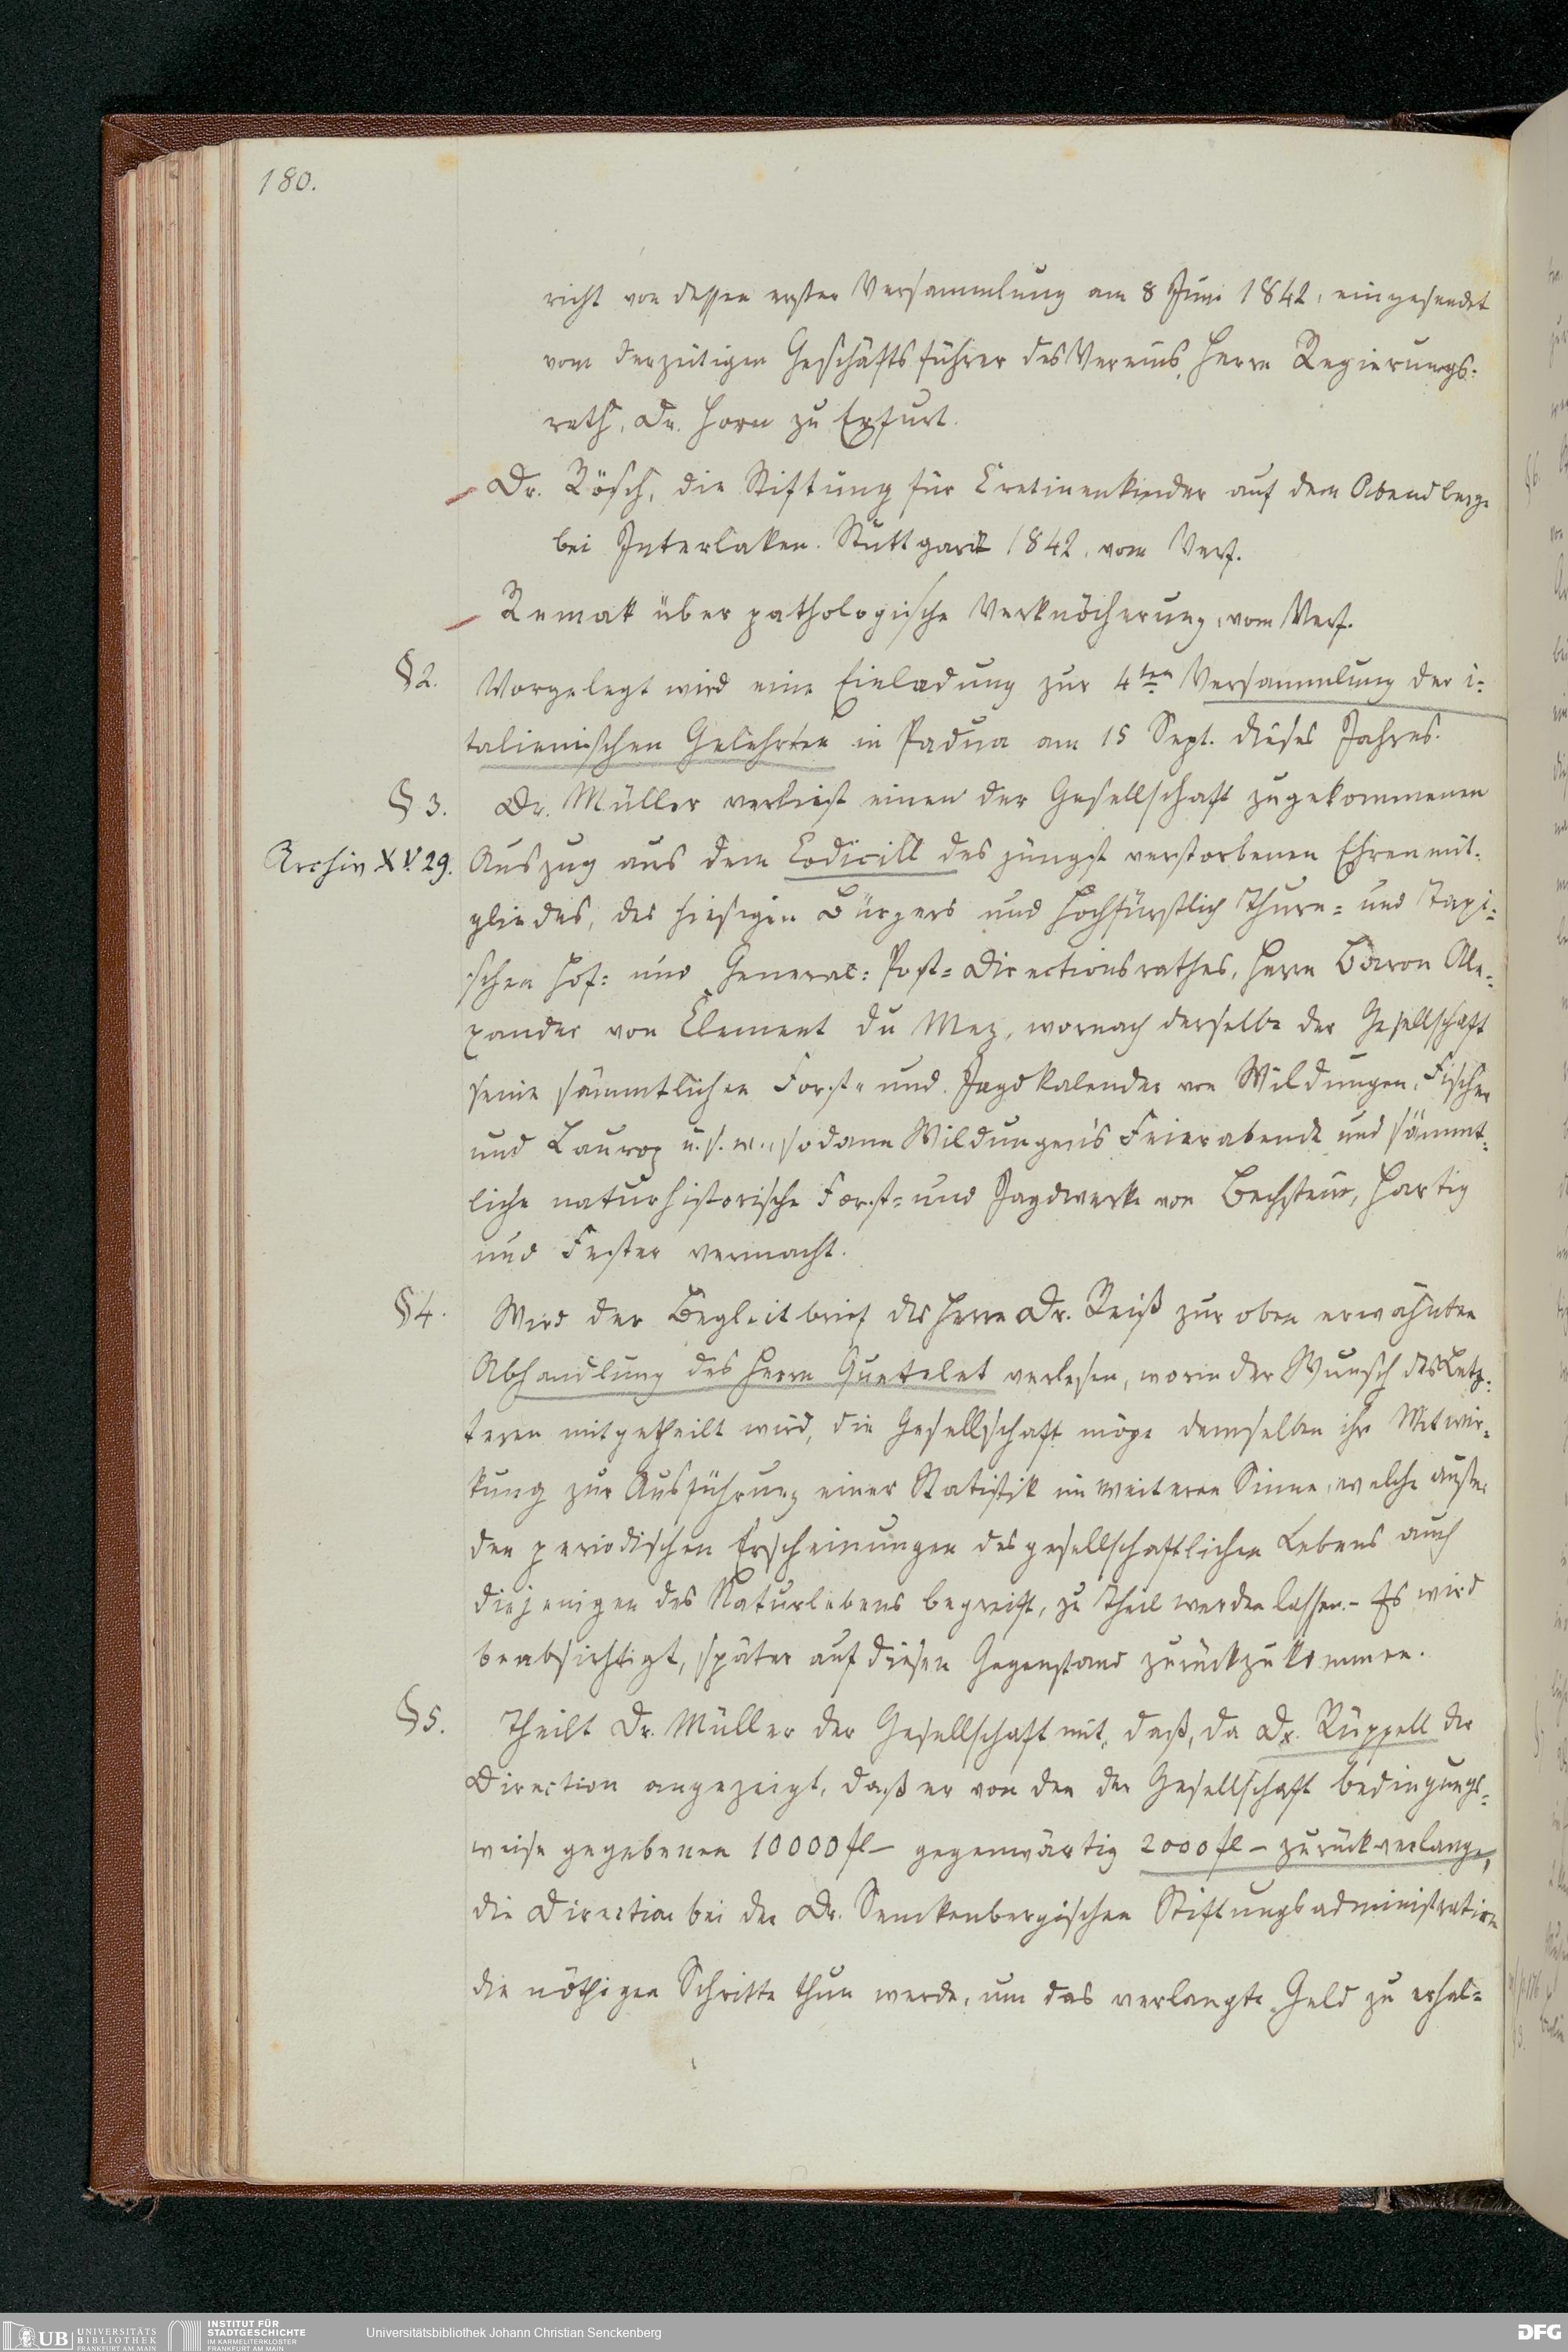 180.
richt von dessen erster Versammlung am 8 Juni 1842, eingesendet
vom derzeitigen Geschäftsführer des Vereins, Herrn Regierungs-
rath, Dr. Horn zu Erfurt.
Dr. Rösch, die Stiftung für Cretinenkinder auf dem Abendberge
bei Interlaken. Stuttgardt 1842, vom Verf.
Remak über pathologische Verknöcherung, vom Verf.
§2. Vorgelegt wird eine Einladung zur 4ten Versammlung der i-
talienischen Gelehrten in Padua am 15 Sept. dieses Jahres.
§3. Dr. Müller verliest einen der Gesellschaft zugekommenen
Archiv XV. 29. Auszug aus dem Codicill des jüngst verstorbenen Ehrenmit-
gliedes, des hiesigen Bürgers und Hochfürstlich Thurn- und Taxi-
schen Hof- und General-Post-Directionsrathes, Herrn Baron Ale-
xander von Clement du Mez, wornach derselbe der Gesellschaft
seine sämmtlichen Forst- und Jagdkalender von Wildungen, Fischer
und Laurop u. s. w., sodann Wildungen's Feierabende und sämmt-
liche naturhistorische Forst- und Jagdwerke von Bechstein, Hartig
und Fester vermacht.
§4. Wird der Begleitbrief des Herrn Dr. Reiß zur oben erwähnten
Abhandlung des Herrn Quetelet verlesen, worin der Wunsch des Letz-
teren mitgetheilt wird, die Gesellschaft möge demselben ihre Mitwir-
kung zur Ausführung einer Statistik im weiteren Sinne, welche außer
den periodischen Erscheinungen des gesellschaftlichen Lebens auch
diejenigen des Naturlebens begreift, zu Theil werden lassen. - Es wird
beabsichtigt, später auf diesen Gegenstand zurückzukommen.
§5. Theilt Dr. Müller der Gesellschaft mit, daß, da Dr. Rüppell der
Direction angezeigt, daß er von den der Gesellschaft bedingungs-
weise gegebenen 10000 fl - gegenwärtig 2000 fl - zurückverlange,
die Direction bei der Dr. Senckenbergischen Stiftungsadministration
die nöthigen Schritte thun werde, um das verlangte Geld zu erhal-
UB UNIVERSITÄTS
BIBLIOTHEK
FRANKFURT AM MAIN
INSTITUT FÜR
STADTGESCHICHTE
IM KARMELITERKLOSTER
FRANKFURT AM MAIN
Universitätsbibliothek Johann Christian Senckenberg
DFG